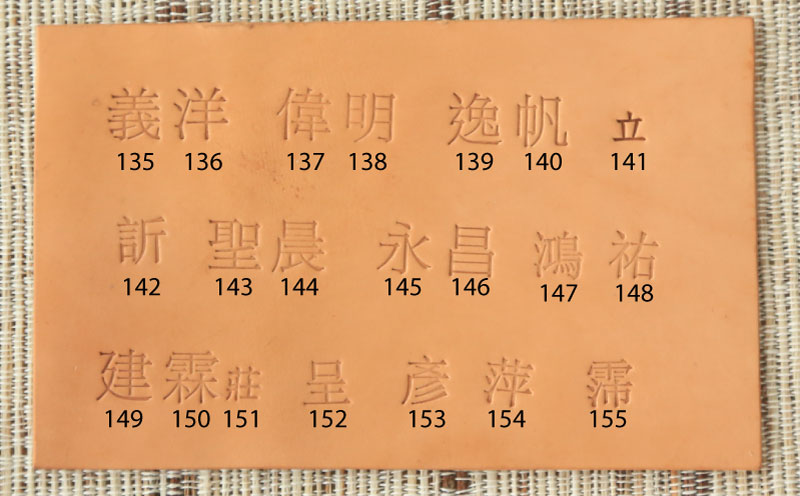 義洋 偉明 逸帆 立
135 136 137 138 139 140 141
訢 聖晨 永昌 鴻 祐
142 143 144 145 146 147 148
建霖莊 呈 彥 萍 霈
149 150 151 152 153 154 155